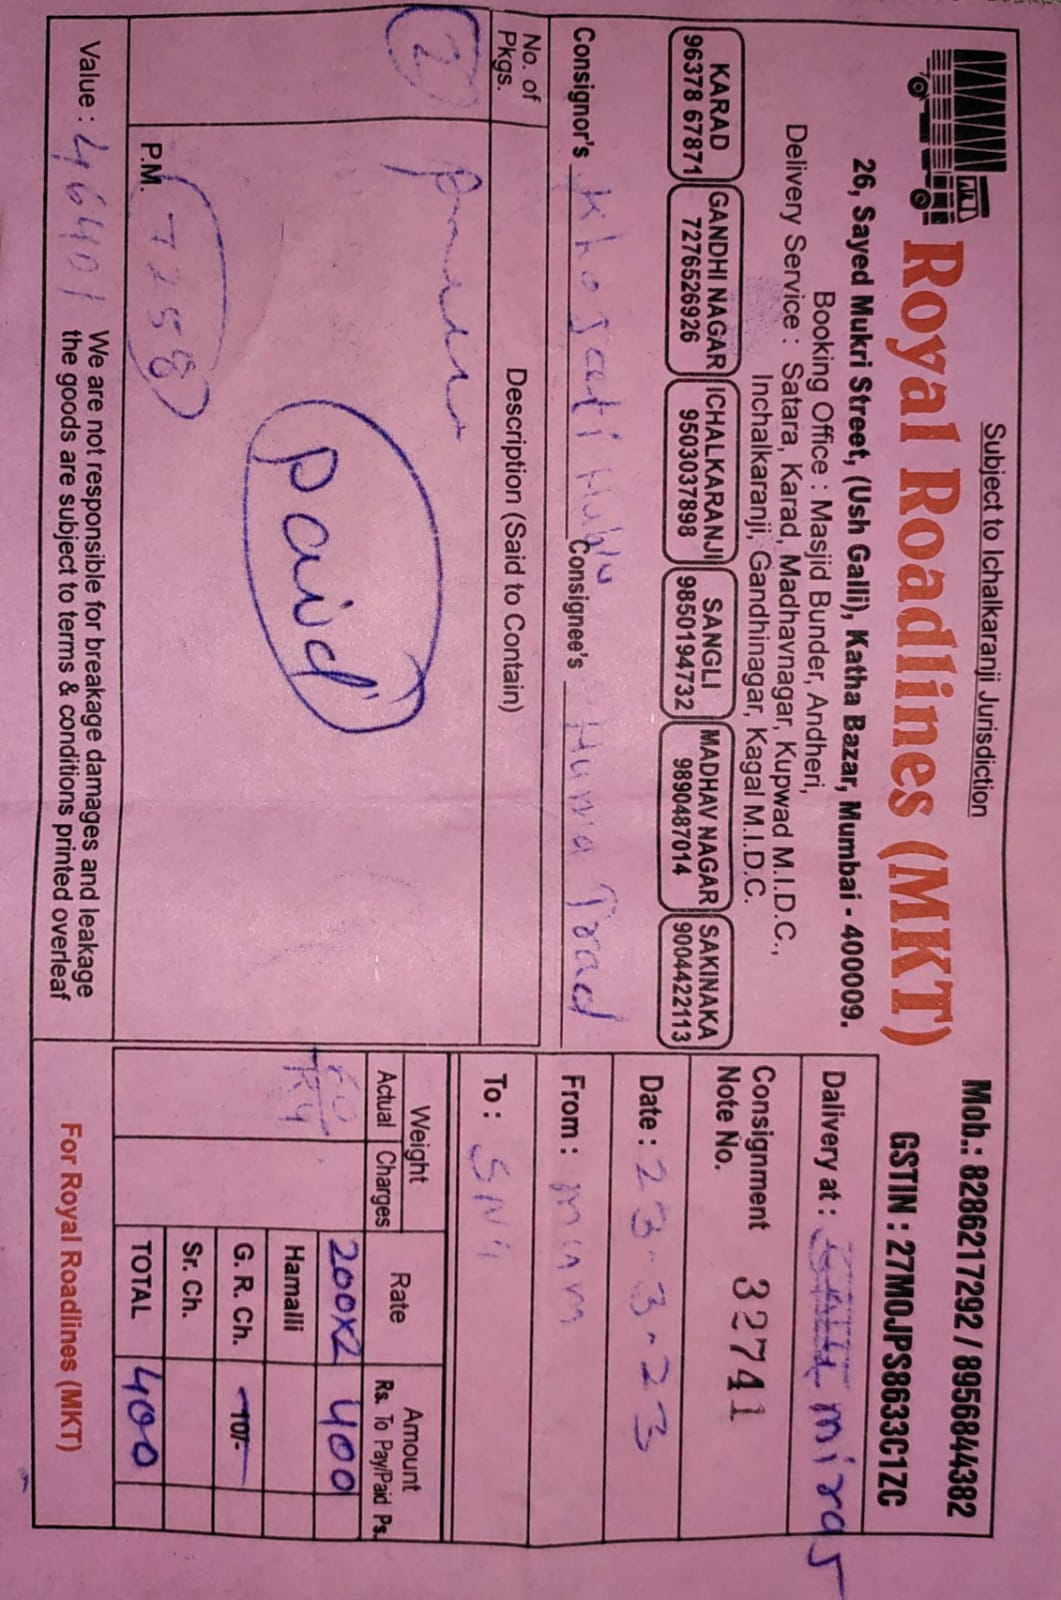 Subject to Ichalkaranji Jurisdiction
Mob.: 8286217292 / 8956844382
GSTIN : 27MOJPS8633C1ZC
Royal Roadlines (MKT)
26, Sayed Mukri Street, (Ush Galli), Katha Bazar, Mumbai - 400009.
Booking Office : Masjid Bunder, Andheri,
Delivery Service : Satara, Karad, Madhavnagar, Kupwad M.I.D.C.,
Inchalkaranji, Gandhinagar, Kagal M.I.D.C.
KARAD
96378 67871
GANDHI NAGAR
7276526926
ICHALKARANJI
9503037898
SANGLI
9850194732
MADHAV NAGAR
9890487014
SAKINAKA
9004422113
Dalivery at : miraj
Consignment
Note No. 32741
Date : 23-3-23
From :
To :
Consignor's Consignee's Huma Trad
No. of
Pkgs.
Description (Said to Contain)
2
paid
P.M. 7258
Weight
Actual Charges
Rate
Amount
Rs. To Pay/Paid Ps.
200x2 400
Hamalli
G. R. Ch. 10/-
Sr. Ch.
TOTAL 400
Value : 46401
We are not responsible for breakage damages and leakage
the goods are subject to terms & conditions printed overleaf
For Royal Roadlines (MKT)